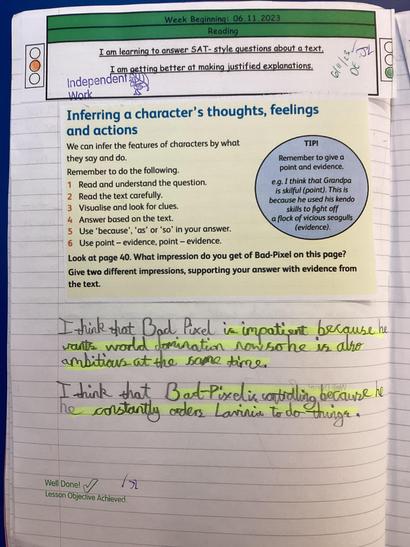 Week Beginning: 06.11.2023
Reading
I am learning to answer SAT- style questions about a text.
I am getting better at making justified explanations.
Independent
Work
6/11/23
Inferring a character's thoughts, feelings
and actions
We can infer the features of characters by what
they say and do.
Remember to do the following.
1 Read and understand the question.
2 Read the text carefully.
3 Visualise and look for clues.
4 Answer based on the text.
5 Use 'because', 'as' or 'so' in your answer.
6 Use point – evidence, point – evidence.
TIP!
Remember to give a
point and evidence.
e.g. I think that Grandpa
is skilful (point). This is
because he used his kendo
skills to fight off
a flock of vicious seagulls
(evidence).
Look at page 40. What impression do you get of Bad-Pixel on this page?
Give two different impressions, supporting your answer with evidence from
the text.
I think that Bad Pixel is impatient because he
wants world domination now so he is also
ambitious at the same time.
I think that Bad-Pixel is controlling because he
he constantly orders Lavinia to do things.
Well Done!
Lesson Objective Achieved